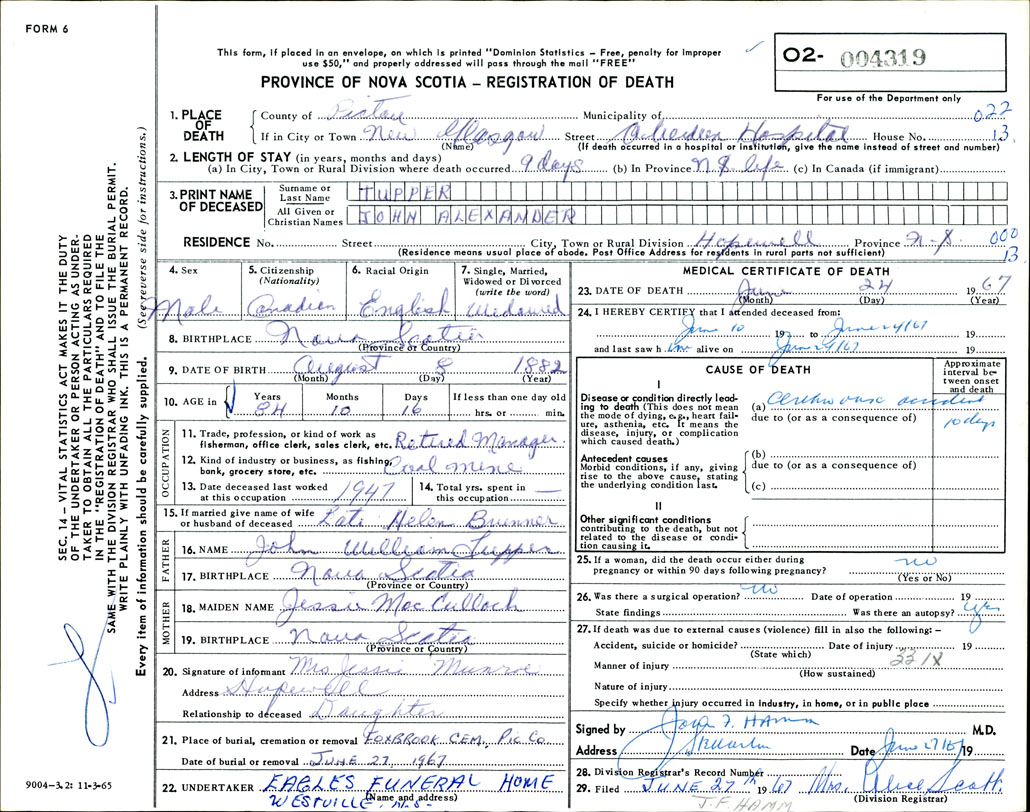 FORM 6
This form, if placed in an envelope, on which is printed "Dominion Statistics – Free, penalty for improper
use $50," and properly addressed will pass through the mail "FREE"
PROVINCE OF NOVA SCOTIA – REGISTRATION OF DEATH
O2- 004319
For use of the Department only
1. PLACE OF DEATH County of Pictou Municipality of 022
If in City or Town New Glasgow Street Aberdeen Hospital House No. 13
(Name) (If death occurred in a hospital or institution, give the name instead of street and number)
2. LENGTH OF STAY (in years, months and days)
(a) In City, Town or Rural Division where death occurred 9 days (b) In Province N.S. life (c) In Canada (if immigrant)
3. PRINT NAME OF DECEASED
Surname or Last Name TUPPER
All Given or Christian Names JOHN ALEXANDER
RESIDENCE No. Street City, Town or Rural Division Hopewell Province N-S. 000
(Residence means usual place of abode. Post Office Address for residents in rural parts not sufficient) 13
4. Sex Male
5. Citizenship (Nationality) Canadian
6. Racial Origin English
7. Single, Married, Widowed or Divorced (write the word) Widowed
8. BIRTHPLACE Nova Scotia
(Province or Country)
9. DATE OF BIRTH August 8 1882
(Month) (Day) (Year)
10. AGE in Years Months Days If less than one day old
84 10 16 hrs. or min.
OCCUPATION
11. Trade, profession, or kind of work as
fisherman, office clerk, sales clerk, etc. Retired Manager
12. Kind of industry or business, as fishing,
bank, grocery store, etc. Coal mine
13. Date deceased last worked at this occupation 1947
14. Total yrs. spent in this occupation —
15. If married give name of wife
or husband of deceased Late Helen Brunner
FATHER
16. NAME John William Tupper
17. BIRTHPLACE Nova Scotia
(Province or Country)
MOTHER
18. MAIDEN NAME Jessie MacCulloch
19. BIRTHPLACE Nova Scotia
(Province or Country)
20. Signature of informant Mrs Jessie Munroe
Address Hopewell
Relationship to deceased Daughter
21. Place of burial, cremation or removal FOXBROOK CEM., PIC. Co.
Date of burial or removal JUNE 27, 1967
22. UNDERTAKER EAGLES FUNERAL HOME
WESTVILLE, N.S.
(Name and address)
MEDICAL CERTIFICATE OF DEATH
23. DATE OF DEATH June 24 1967
(Month) (Day) (Year)
24. I HEREBY CERTIFY that I attended deceased from:
June 10 19 to June 24/67 19
and last saw h im alive on June 24/67 19
CAUSE OF DEATH
Approximate interval between onset and death
I
Disease or condition directly leading to death (This does not
mean the mode of dying, e.g., heart failure, asthenia, etc. It means the
disease, injury, or complication
which caused death.)
(a) Cerebrovasc accident
10 days
due to (or as a consequence of)
Antecedent causes
Morbid conditions, if any, giving
rise to the above cause, stating
the underlying condition last.
(b)
due to (or as a consequence of)
(c)
II
Other significant conditions
contributing to the death, but not
related to the disease or condition causing it.
25. If a woman, did the death occur either during
pregnancy or within 90 days following pregnancy? no
(Yes or No)
26. Was there a surgical operation? no Date of operation 19
State findings Was there an autopsy? yes
27. If death was due to external causes (violence) fill in also the following: –
Accident, suicide or homicide? Date of injury 19
(State which) 331X
Manner of injury
(How sustained)
Nature of injury
Specify whether injury occurred in industry, in home, or in public place
Signed by J F. Hamm M.D.
Address Date June 27/67 19
28. Division Registrar's Record Number
29. Filed JUNE 27 1967 Mrs. Alice Scott
(Division Registrar)
J.F. HAMM
SEC. 14 – VITAL STATISTICS ACT MAKES IT THE DUTY
OF THE UNDERTAKER OR PERSON ACTING AS UNDER-
TAKER TO OBTAIN ALL THE PARTICULARS REQUIRED
IN THE "REGISTRATION OF DEATH" AND TO FILE THE
SAME WITH THE DIVISION REGISTRAR WHO SHALL ISSUE THE BURIAL PERMIT.
WRITE PLAINLY WITH UNFADING INK. THIS IS A PERMANENT RECORD.
Every item of information should be carefully supplied. (See reverse side for instructions.)
9004-3.2: 11-3-65